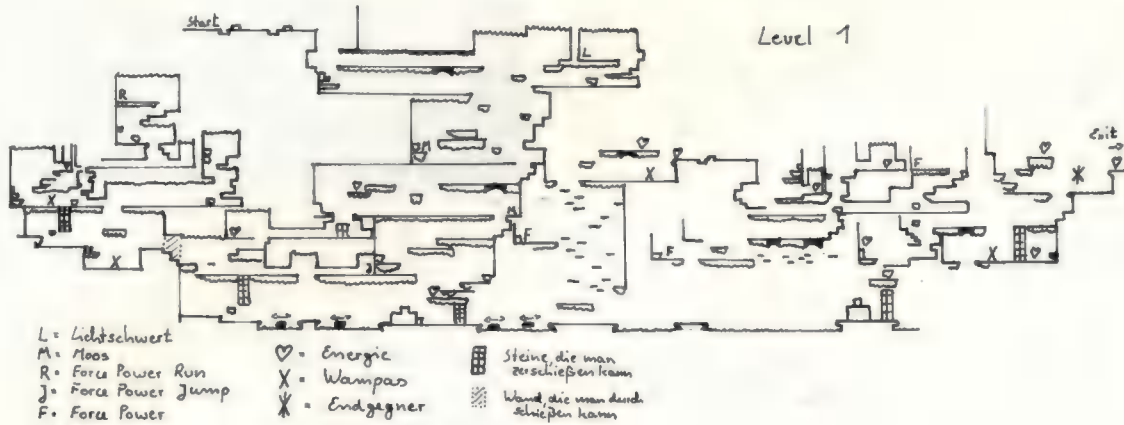 Start
Level 1
L
R
M
Exit
F
X
X
M
F
F
X
X
J
L = Lichtschwert
M = Moos
R = Force Power Run
J = Force Power Jump
F = Force Power
♡ = Energie
X = Wampas
= Endgegner
Steine, die man
zerschießen kann
Wand, die man durch
schießen kann